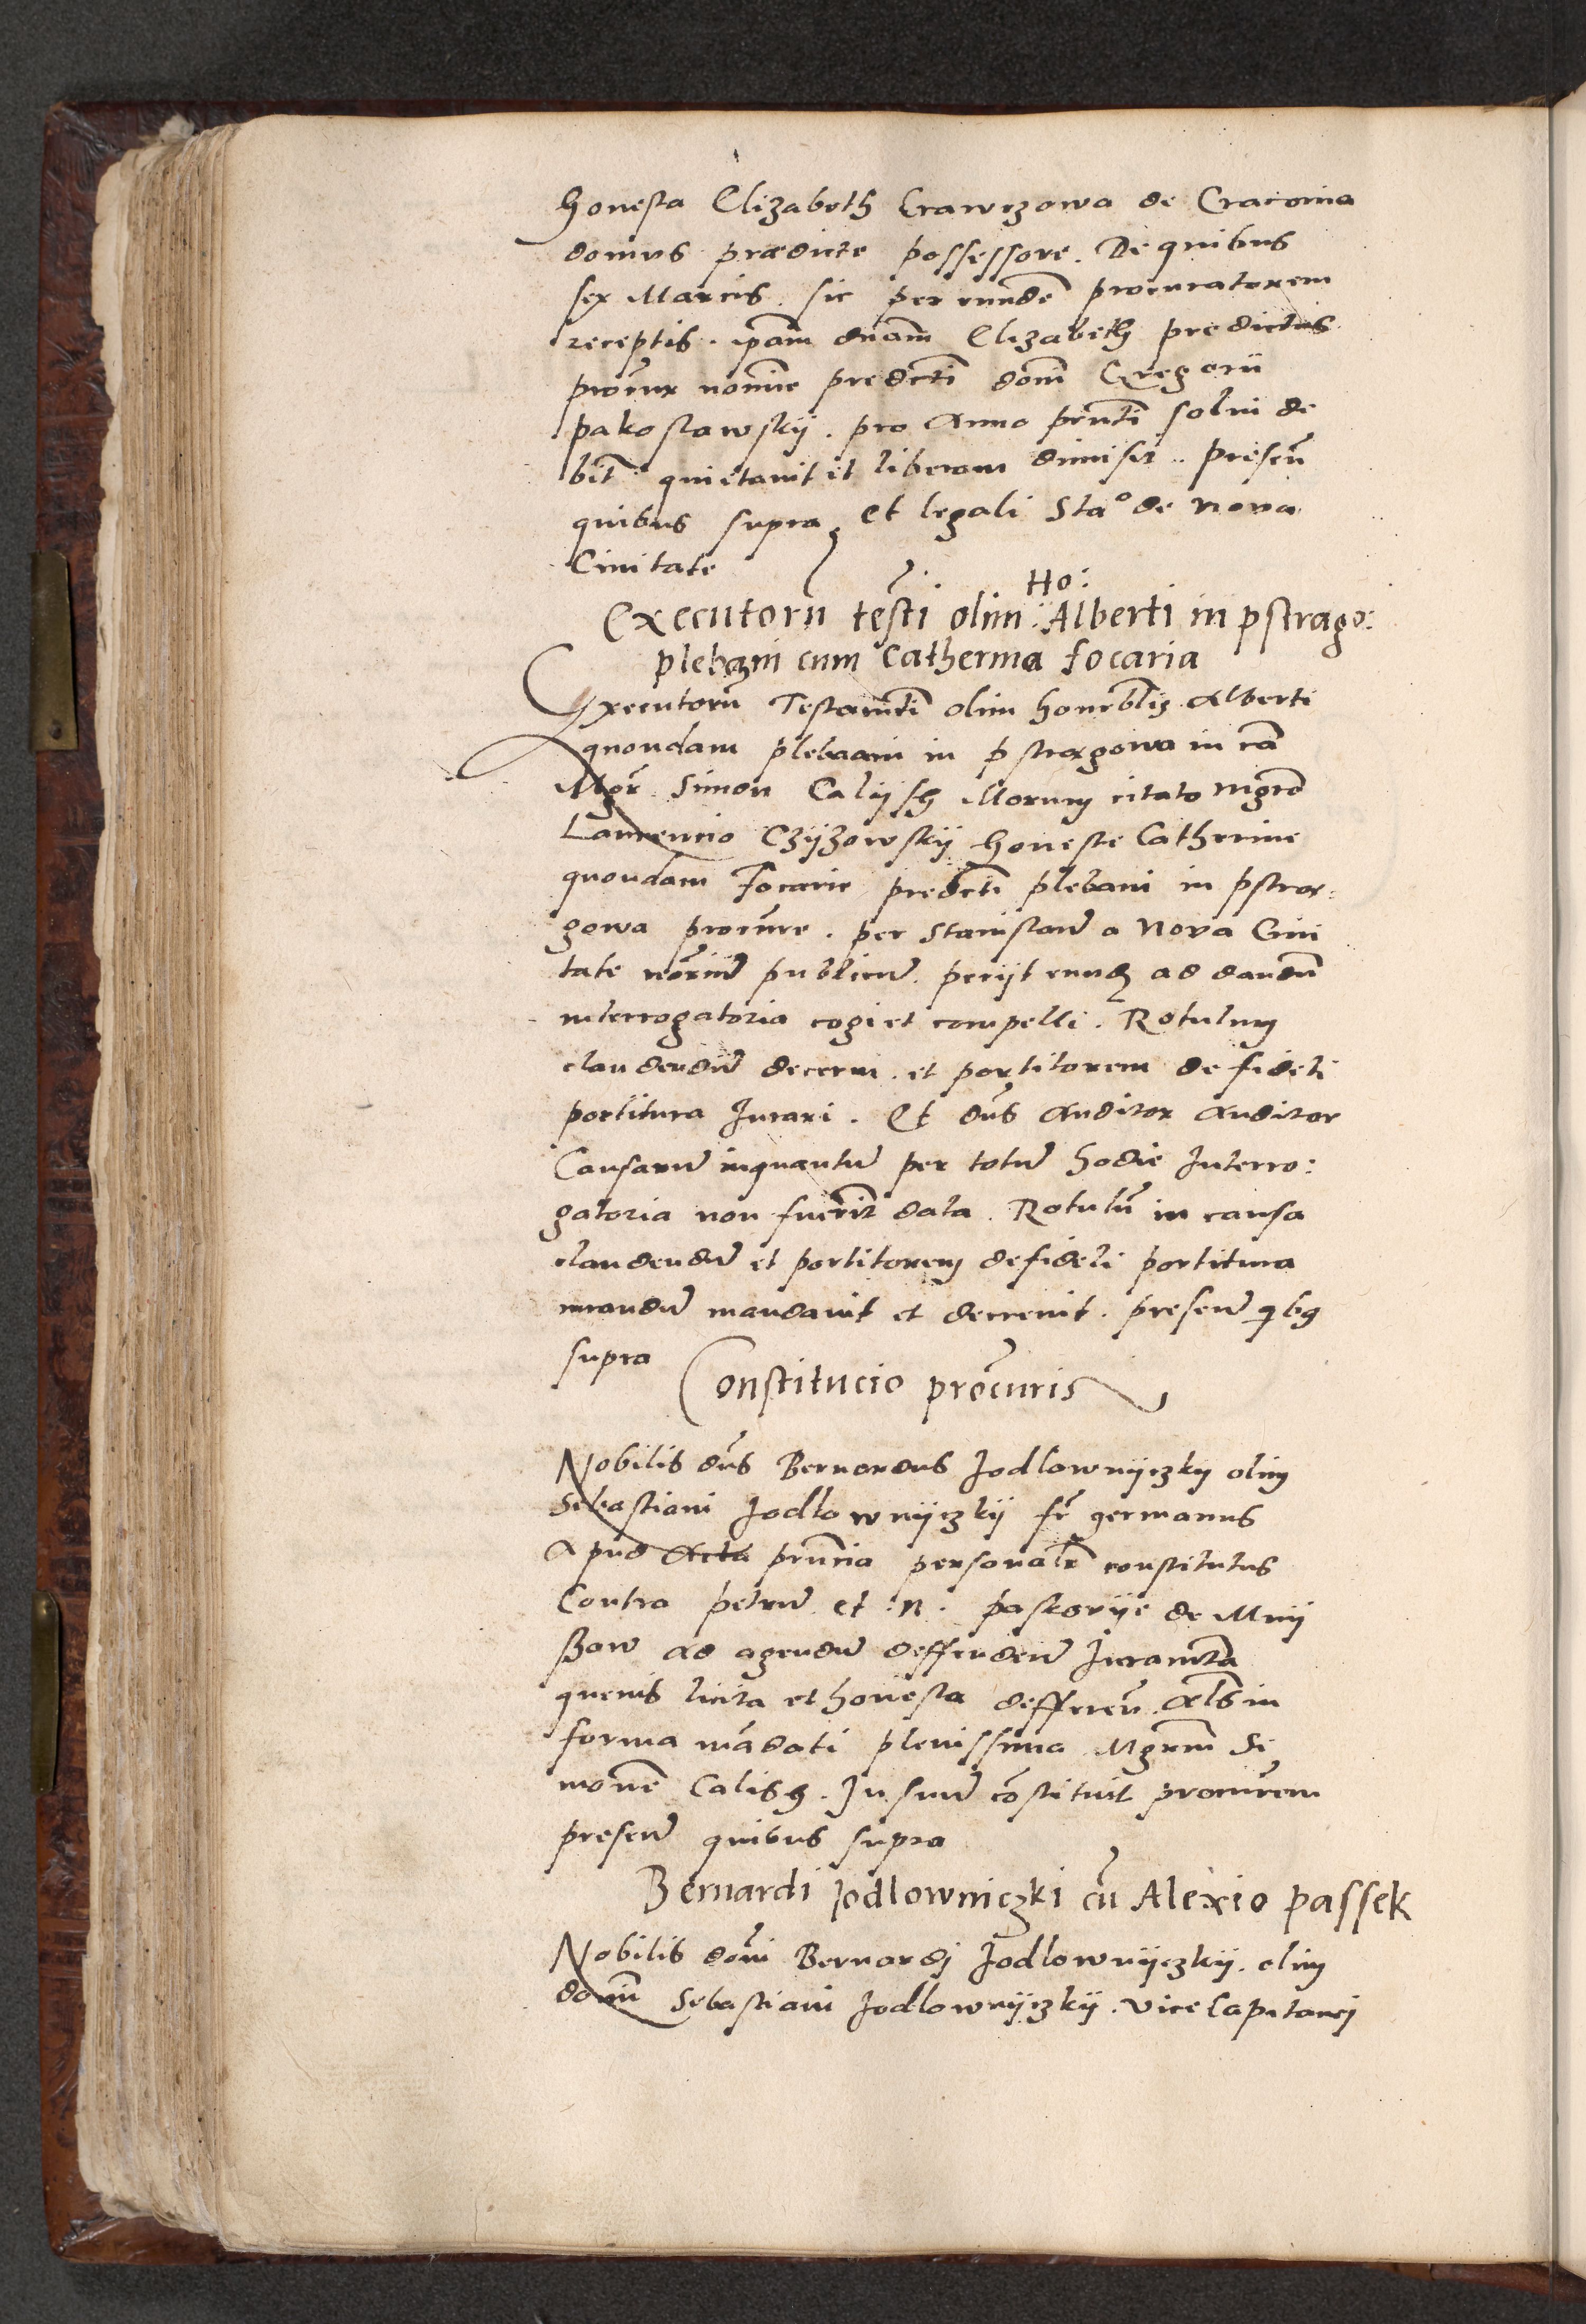 Honesta Elizabeth Crawczowa de Cracovia
domus prædicte possessore. De quibus
sex Marcis. sic per eundẽ procuratorem
receptis. ipam dnam Elizabeth predictus
procur nomine predicti domi Gregorii
pakoslawskij. pro Anno pñti solvi de
bit quietavit et liberam dimisit. Presen̄
quibus supra, et legali Sta° de Nova
Civitate
Ho:
Executorũ testi olim Alberti in pstrago:
plebani cum Catherina focaria
Executorũ Testamti olim honorblis Alberti
quondam plebaani in pstragowa in cã
Mgr Simon Calijsch Morum citato mgro
Laurencio Czijzowskij Honeste Catherine
quondam focarie predcti plebani in pstra:
gowa procure. per Stanislaũ a Nova Civi
tate notriũ publicũ. pecijt eundẽ ad dandũ
interrogatoria cogi et compelli. Rotulum
claudendũ decerni. et portitorem de fideli
portitura Jurari. Et dñs Auditor Auditor
Causarũ inquantũ per totũ hodie Interro:
gatoria non fuerit data. Rotulũ in causa
claudendũ et portitorem de fideli portitura
iurandũ mandavit et decrevit. presen̄ qbg
supra
Constitucio procuris
Nobilis dñs Bernardus Jodlownijczky olim
Sebastiani Jodlownijczkij fr germanus
Apud Acta prñcia personalr constitutus
Contra petrũ et .N. paskorije de Mnij
ßow ad agendũ deffendenũ Juramta
quevis licita et honesta defferen̄. Als in
forma mãdati plenissima Mgrum Si
monẽ Calisch. In suũ cõstituit procurem
presen̄ quibus supra
Bernardi Jodlowniczki cũ Alexio passek
Nobilis domi Bernardj Jodlownijczkij. olim
domi Sebastiani Jodlownijczkij. Vice Capitanej